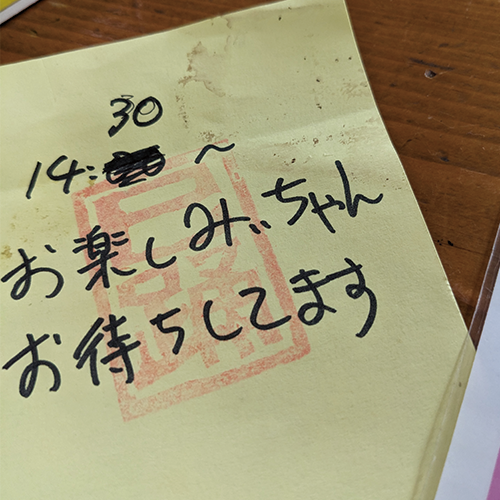 30
14:~
お楽しみぃちゃん
お待ちしてます